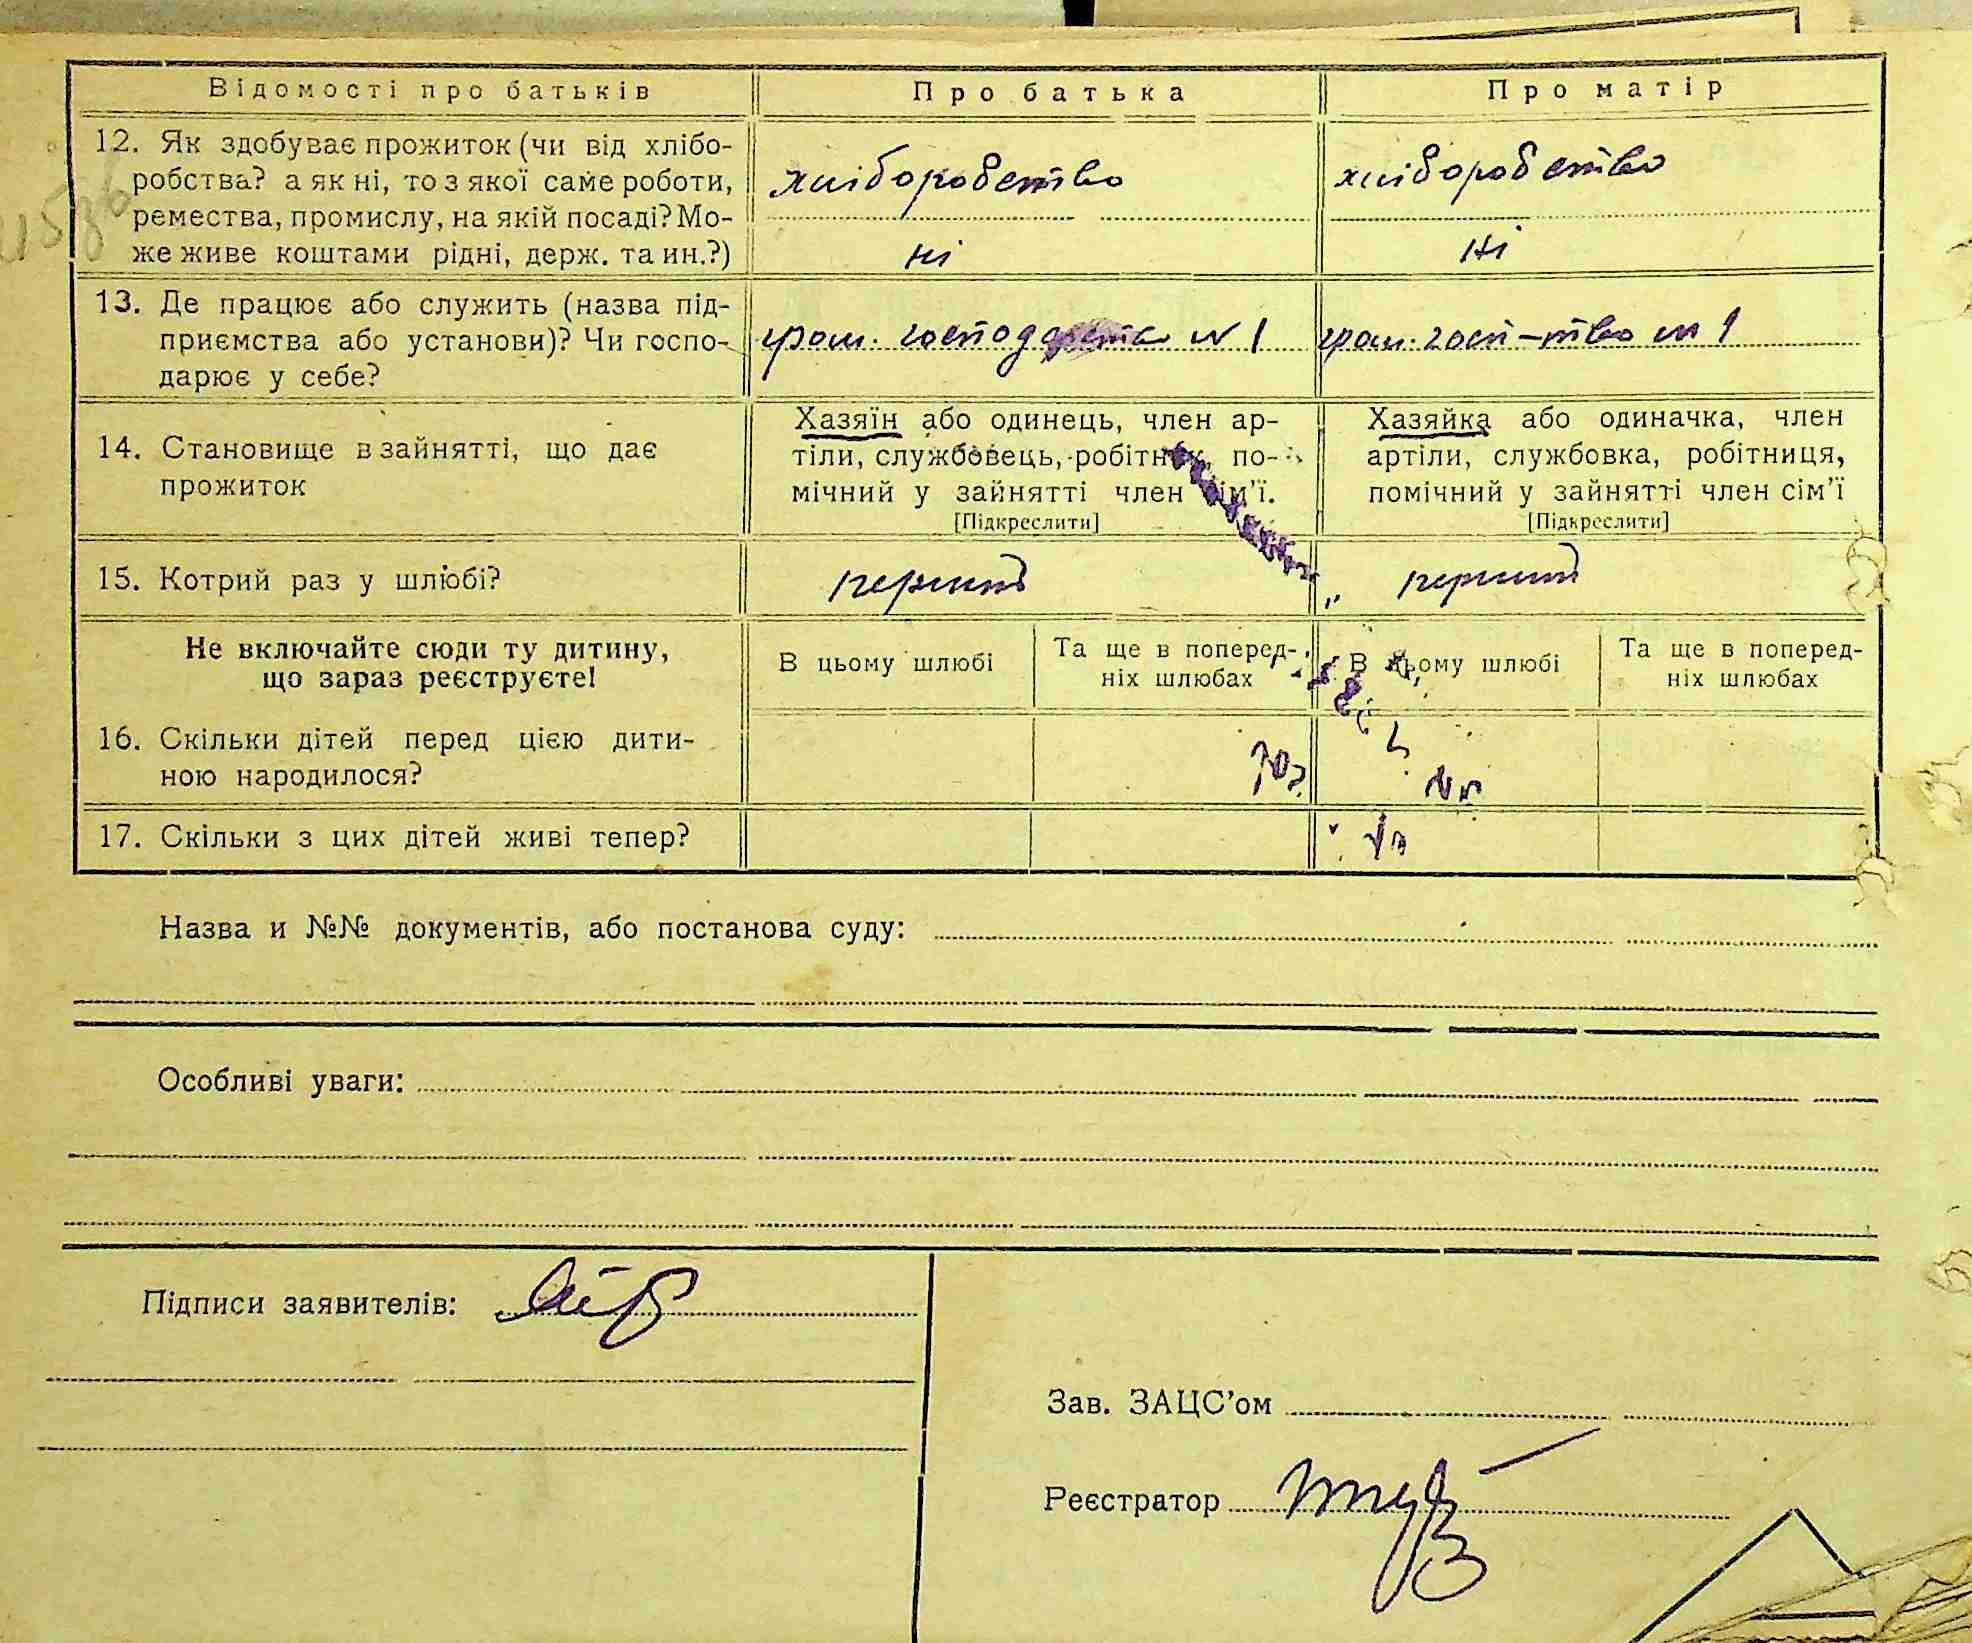 Відомості про батьків Про батька Про матір
12. Як здобуває прожиток (чи від хлібо-
робства? а як ні, то з якої саме роботи,
ремества, промислу, на якій посаді? Мо-
же живе коштами рідні, держ. та ин.?)
хліборобство
ні
хліборобство
ні
13. Де працює або служить (назва під-
приємства або установи)? Чи госпо-
дарює у себе?
гром. господарство № 1
гром. госп-тво № 1
14. Становище в зайнятті, що дає
прожиток
Хазяїн або одинець, член ар-
тіли, службовець, робітник, по-
мічний у зайнятті член сім'ї.
[Підкреслити]
Хазяйка або одиначка, член
артіли, службовка, робітниця,
помічний у зайнятті член сім'ї
[Підкреслити]
15. Котрий раз у шлюбі?
перший
перший
Не включайте сюди ту дитину,
що зараз реєструєте!
В цьому шлюбі
Та ще в поперед-
ніх шлюбах
В цьому шлюбі
Та ще в поперед-
ніх шлюбах
16. Скільки дітей перед цією дити-
ною народилося?
17. Скільки з цих дітей живі тепер?
Назва и №№ документів, або постанова суду:
Особливі уваги:
Підписи заявителів:
Зав. ЗАЦС'ом
Реєстратор